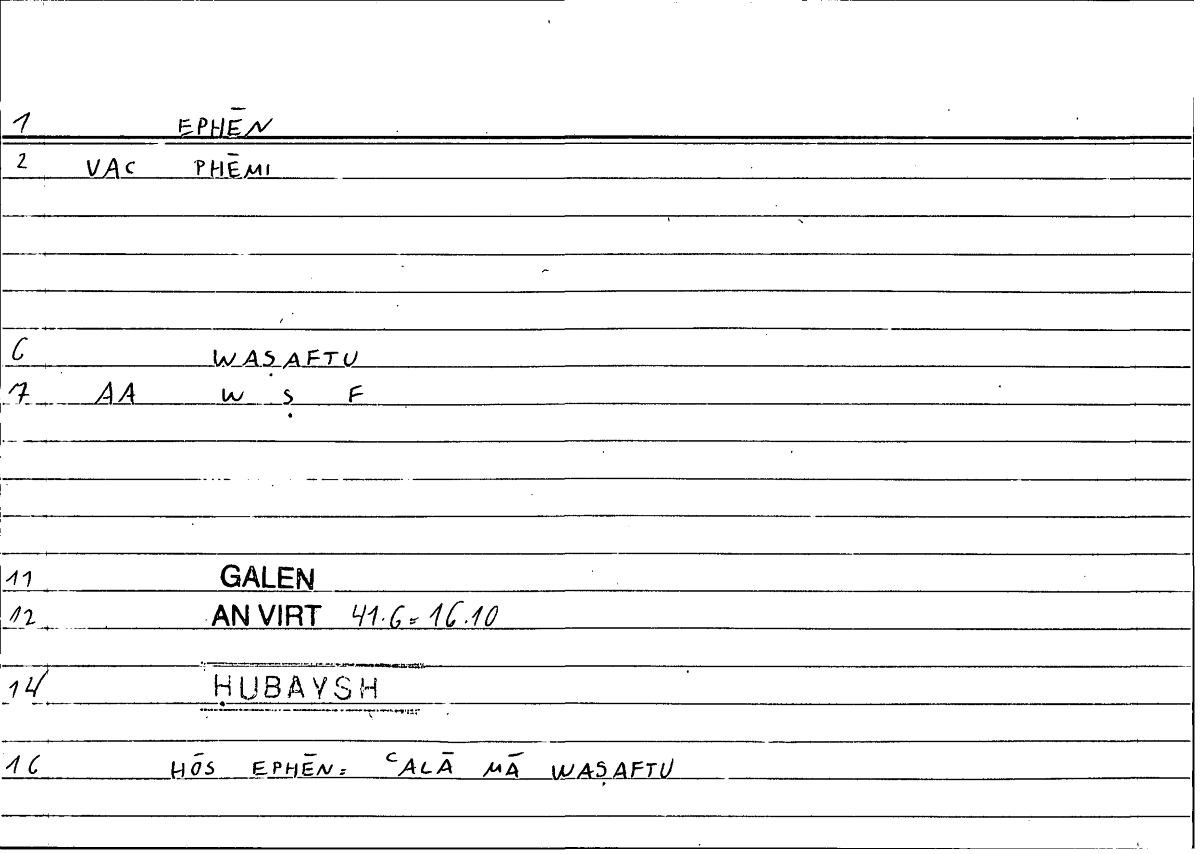 1 EPHĒN
2 VAC PHĒMI
6 WAṢAFTU
7 AA W Ṣ F
11 GALEN
12 AN VIRT 41.6 = 16.10
14 ḤUBAYSH
16 HŌS EPHĒN = ʿALĀ MĀ WAṢAFTU